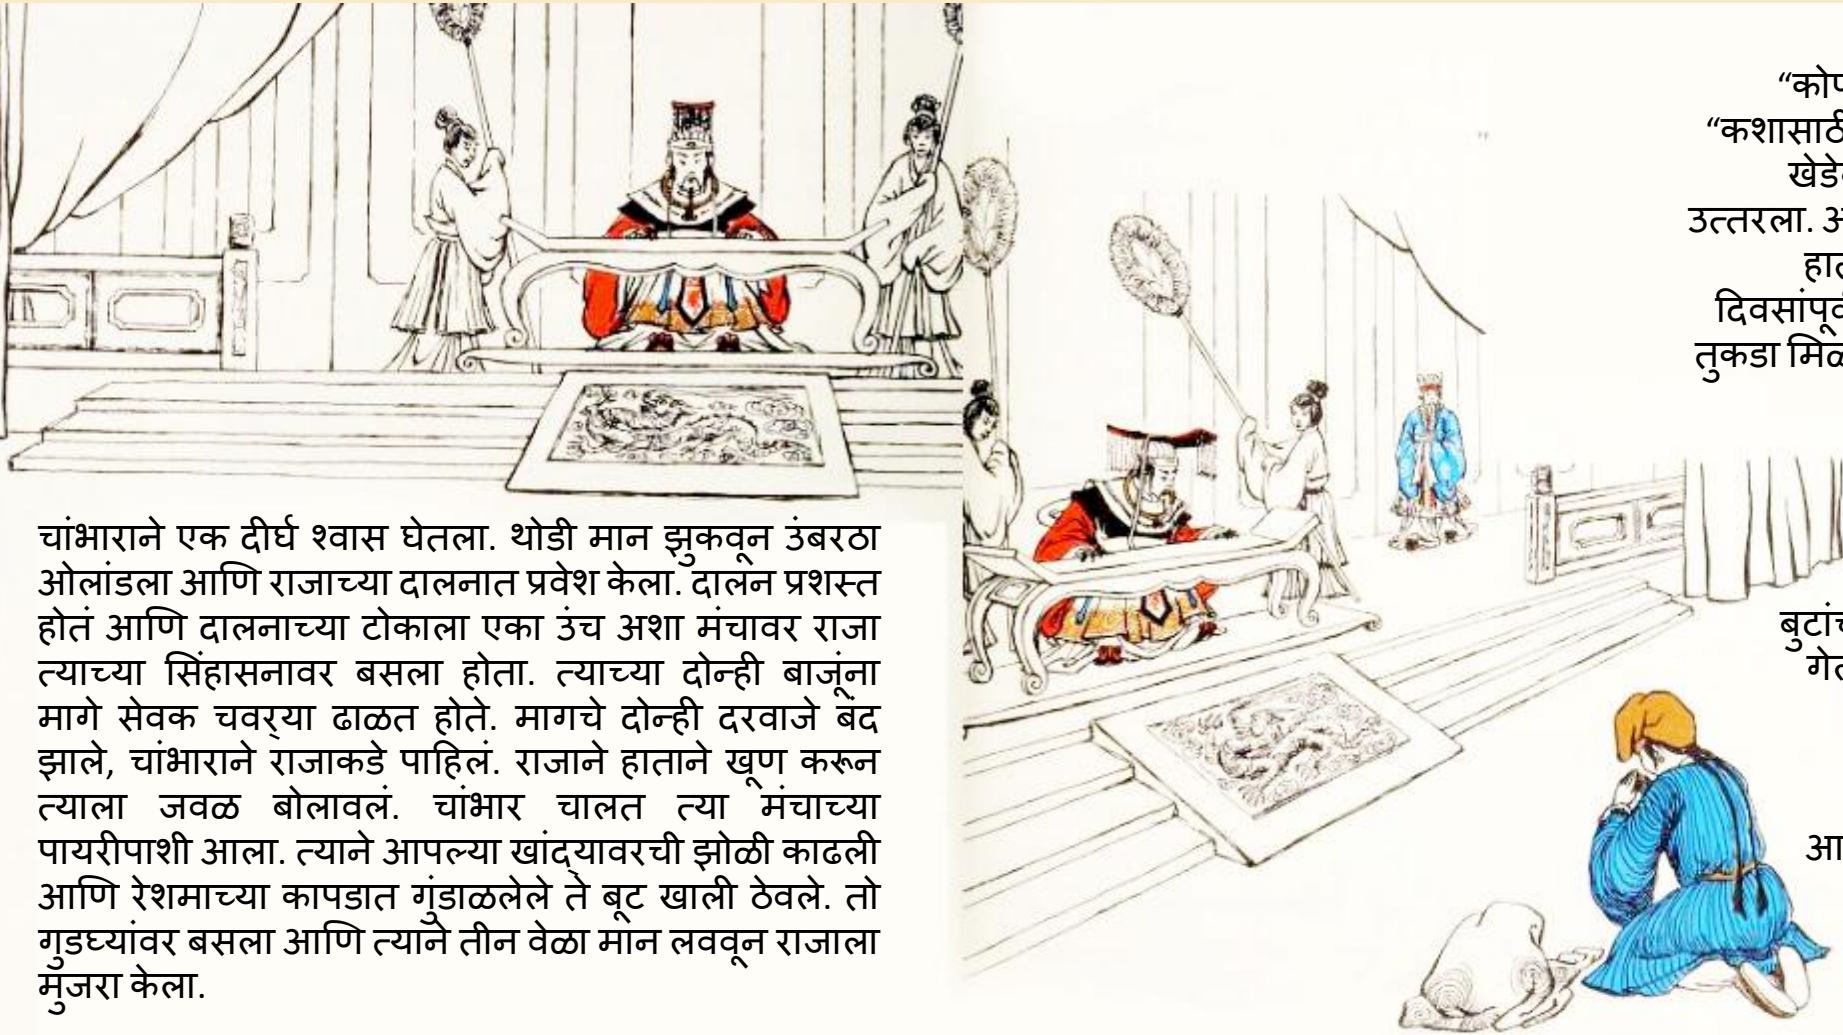 चांभाराने एक दीर्घ श्वास घेतला. थोडी मान झुकवून उंबरठा
ओलांडला आणि राजाच्या दालनात प्रवेश केला. दालन प्रशस्त
होतं आणि दालनाच्या टोकाला एका उंच अशा मंचावर राजा
त्याच्या सिंहासनावर बसला होता. त्याच्या दोन्ही बाजूंना
मागे सेवक चवर्‍या ढाळत होते. मागचे दोन्ही दरवाजे बंद
झाले, चांभाराने राजाकडे पाहिलं. राजाने हाताने खूण करून
त्याला जवळ बोलावलं. चांभार चालत त्या मंचाच्या
पायरीपाशी आला. त्याने आपल्या खांद्यावरची झोळी काढली
आणि रेशमाच्या कापडात गुंडाळलेले ते बूट खाली ठेवले. तो
गुडघ्यांवर बसला आणि त्याने तीन वेळा मान लववून राजाला
मुजरा केला.
“कशासाठी
उत्तरला.
तुकडा